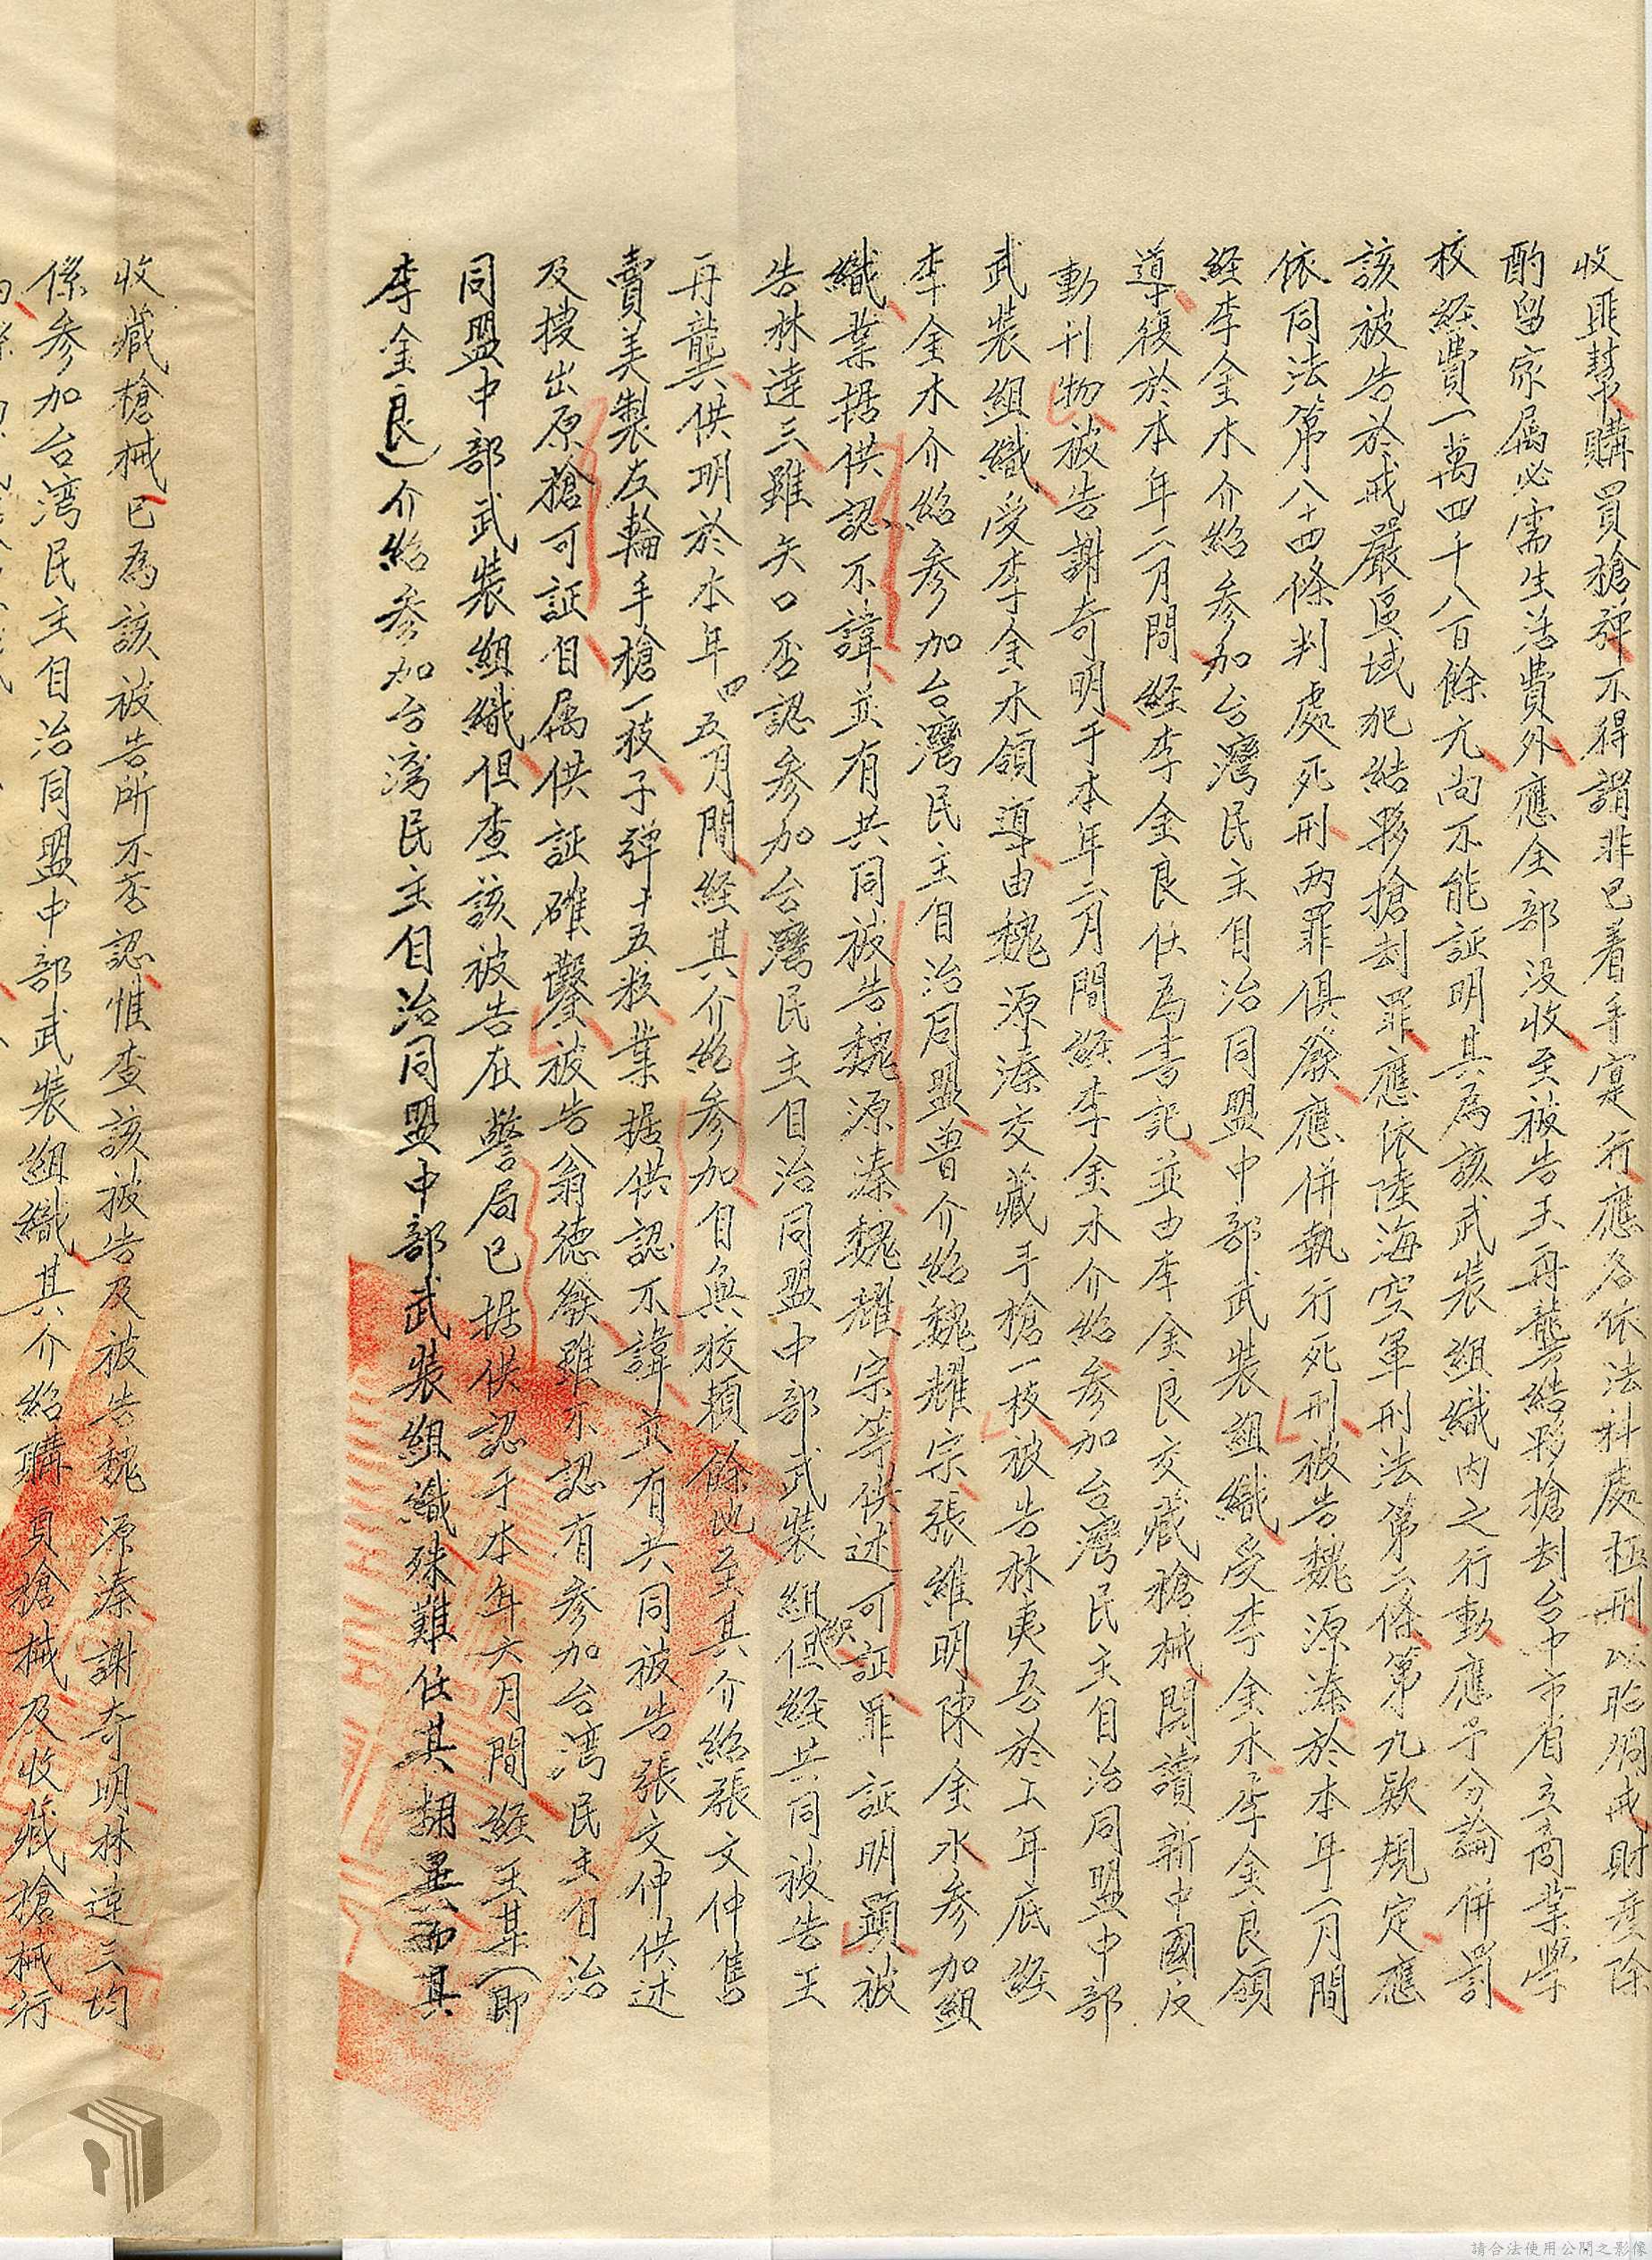 收匪幫購買槍彈不得謂非已着手寔行應各依法科處極刑以昭烱戒財產除
酌留家属必需生活費外應全部沒收至被告王再龔結夥搶刦台中市省立商業學
校経費一萬四千八百餘元尚不能証明其為該武裝組織內之行動應予分論併罰
該被告於戒嚴區域犯結夥搶刦罪應依陸海空軍刑法第二條第九欵規定應
依同法第八十四條判處死刑兩罪俱發應併執行死刑被告魏源溱於本年二月間
経李金木介紹参加台灣民主自治同盟中部武裝組織受李金木李金良領
導復於本年二月間経李金良任為書記並由李金良交藏槍械閱讀新中國反
動刊物被告謝奇明于本年二月間経李金木介紹参加台灣民主自治同盟中部
武裝組織受李金木領導由魏源溱交藏手槍一枝被告林夷吾於上年底経
李金木介紹参加台灣民主自治同盟曽介紹魏耀宗張維明陳金水参加組
織業据供認不諱並有共同被告魏源溱魏耀宗等供述可証罪証明顕被
告林達三雖矢口否認参加台灣民主自治同盟中部武裝組織但経共同被告王
再龔供明於本年四五月間経其介紹参加自無狡頼餘地至其介紹張文仲售
賣美製左輪手槍一枝子彈十五粒業据供認不諱並有共同被告張文仲供述
及搜出原槍可証自属供証確鑿被告翁德發雖不認有参加台湾民主自治
同盟中部武裝組織但查該被告在警局已据供認于本年六月間経王某(即
李金良)介紹参加台湾民主自治同盟中部武裝組織殊難任其翻異而其
收藏槍械已為該被告所不否認惟查該被告及被告魏源溱謝奇明林達三均
係参加台湾民主自治同盟中部武裝組織其介紹購買槍械及收藏槍械行
請合法使用公開之影像